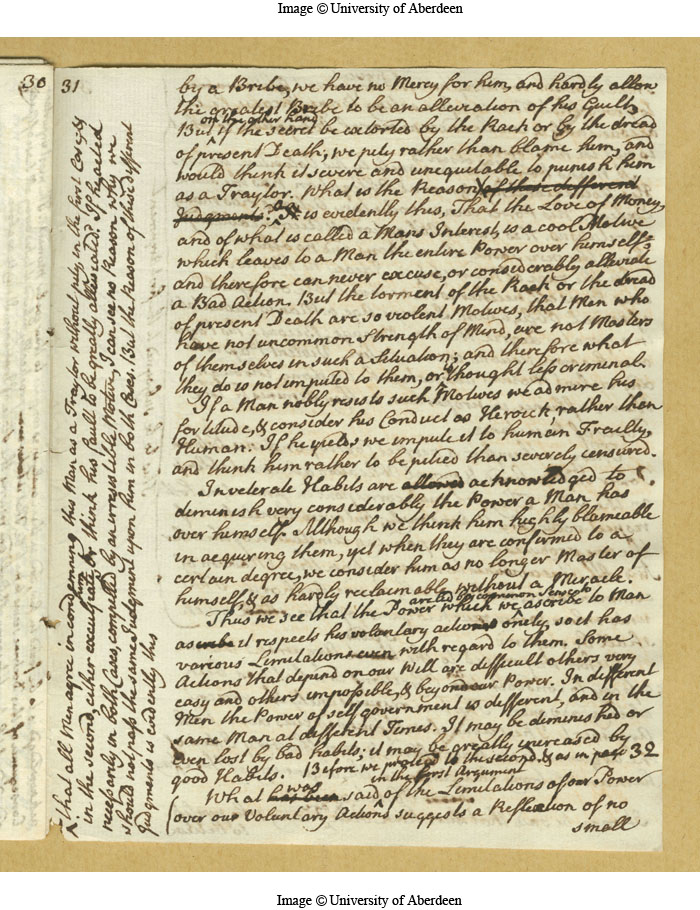 Image © University of Aberdeen
30
31
by a Bribe, we have no Mercy for him, and hardly allow
the greatest Bribe to be an alleviation of his Guilt,
on the other hand
But if the secret be extorted by the Rack or by the dread
of present Death, we pity rather than blame him, and
would think it severe and unequitable to punish him
as a Traytor. What is the Reason of these different
Judgments? It is evidently this, That the Love of Money,
and of what is called a Mans Interest, is a cool Motive
which leaves to a Man the entire Power over himself;
and therefore can never excuse, or considerably alleviate
a Bad Action. But the torment of the Rack or the dread
of present Death are so violent Motives, that Men who
have not uncommon Strength of Mind, are not Masters
of themselves in such a Situation; and therefore what
they do is not imputed to them, or thought less criminal.
If a Man nobly resists such Motives we admire his
fortitude, & consider his Conduct as Heroick rather than
Human. If he yields we impute it to human Frailty,
and think him rather to be pitied than severely censured.
Inveterate Habits are allowed acknowledged to
deminish very considerably the Power a Man has
over himself. Although we think him highly blameable
in acquiring them, yet when they are confirmed to a
certain degree, we consider him as no longer Master of
himself, & as hardly reclaimable without a Miracle.
are led by common Sense to
Thus we see that the Power which we ascribe to Man
ascribe it respects his voluntary actions onely, so it has
various Limitations even with regard to them. Some
Actions that depend on our Will are difficult others very
easy and others impossible, & beyond our Power. In different
Men the Power of self government is different, and in the
same Man at different Times. It may be deminished or
even lost by bad habits; it may be greatly increased by
good Habits. Before we proceed to the second, & as in page 32
in the first Argument
was
What has been said of the Limitations of our Power
over our Voluntary Actions suggests a Reflexion of no
small
that all Men agree in condemning this Man as a Traytor without pity in the first Case, &
in the second, either exculpate him or think his fault to be greatly alleviated? If he acted
necessarly in both Cases, compelled by an irresistible Motive, I can see no Reason why we
should not pass the same Judgment upon him in both Cases. But the Reason of these different
Judgments is evidently this
Image © University of Aberdeen